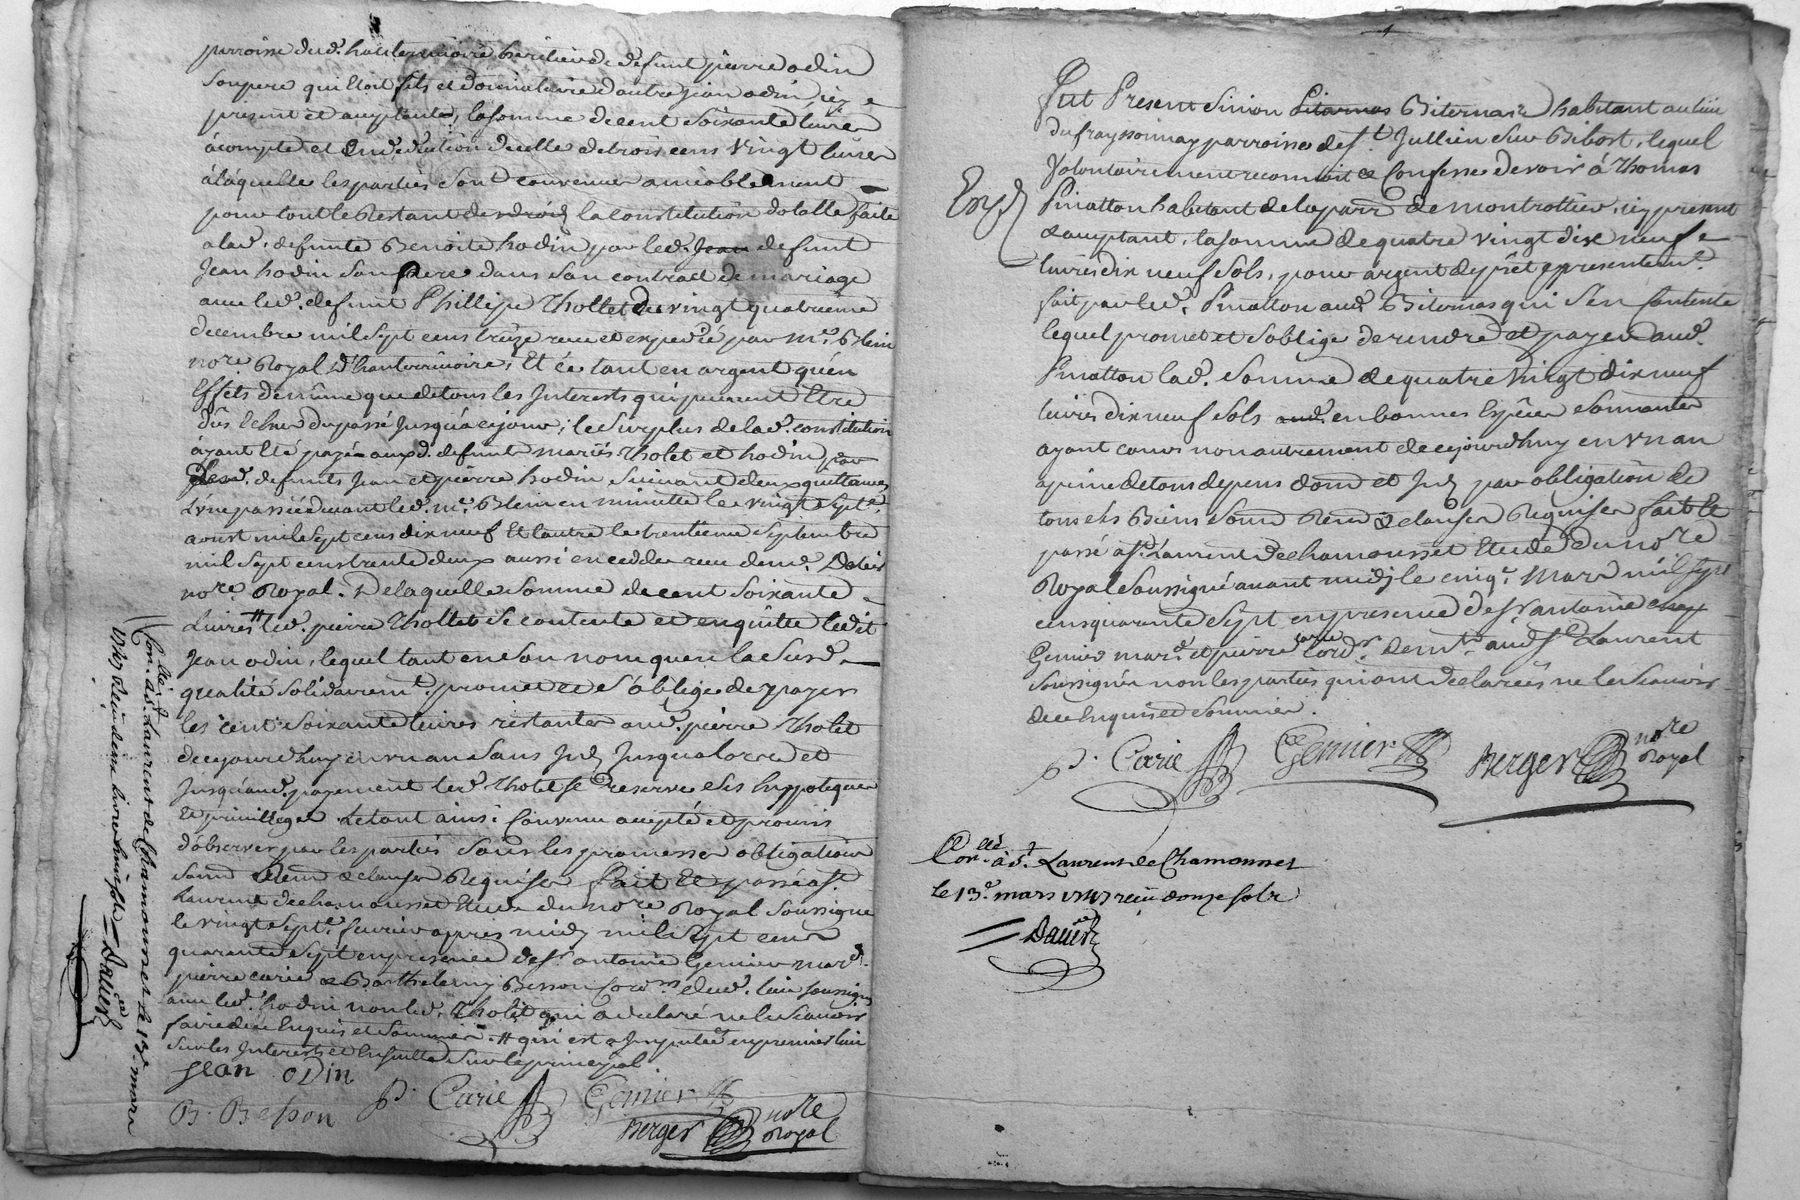 parroisse dud. hauterivoire heritier de deffunt pierre odin
son pere qui etoit fils et donnataire d'autre jean odin, icy
present et acceptante, la somme de cent soixante livres
acompte et en deduction de celle de trois cens vingt livres
à laquelle les parties sont convenues amiablement
pour tout le restant des droits la constitution dotalle faite
a lad. defunte Benoite hodin par led. Jean defunt
Jean hodin son pere dans son contract de mariage
avec led. defunt Phillipe Thollet du vingt quatrieme
decembre mil sept cens treize receu et expedié par me. Blein
nore. Royal d'hauterivoire, Et ce tant en argent qu'en
Effets de même que de tous les Interests qui peuvent Etre
dûs Echus du passé Jusqu'à ce jour, le surplus de lad. constitution
ayant Eté payé auxd. defunt mariés Tholet et hodin par
lesd. defunts Jean et pierre hodin suivant deux quittances
L'une passée devant led. me. Blein en minutte le vingt sept.
aoust mil sept cens dix neuf Et l'autre le trentieme septembre
mil sept cens trente deux aussi en cedde receu dem.
nore. Royal. De laquelle somme de cent soixante
Livres # led. pierre Thollet se contente et en quitte ledit
Jean odin, lequel tant en son nom que en la susd.
qualité solidairemt. promet et s'oblige de payer
les cent soixante livres restantes aud. pierre Tholet
de ce jourd'huy en un an sans Jusqu'alors et
Jusqu'aud. payement led. Tholet se reserve ses hyppoteques
Et privilleges. Letout ainsi Convenu accepté et promis
d'observer par les parties sous les promesses obligations
soum. Ren. & clauses Requises fait Et passé a St.
Laurent de chamousset Etude du nore Royal soussigné
le vingt sept. fevrier apres midy mil sept cens
quarante sept en presence de sr. antoine Genier mard.
pierre carie & Barthelemy Besson Cordrs. dud. lieu soussignés
avec led. hodin non led. Tholet qui a declaré ne le scavoir
faire de ce Enquis et sommés. # qui est a Imputée en premier lieu
sur les Interests et Ensuitte sur le principal.
Jean odin
B. Besson p. Carie Genier
Berger nore Royal
Conllé. à St. Laurent de Chamousset le 13e. mars
1747 Reçu deux livres huit sols = Daüer
Fut Present Simon Pitarnas Biternas habitant au lieu
du frayssonnay parroisse de St. Jullien sur Bibost, lequel
Volontairement reconnoit & Confesse devoir à Thomas
Pinatton habitant de la parr. de montrottier, icy present
& acceptant, la somme de quatre vingt dix neuf
livres dix neuf sols, pour argent de prêt presentemt.
fait par led. Pinatton aud. Biternas qui s'en Contente
lequel promet et s'oblige de rendre et payer aud.
Pinatton lad. somme de quatre vingt dix neuf
livres dix neuf sols aud. en bonnes Espêces sonnantes
ayant cours non autrement de ce jourd'huy en un an
a peine de tous depens dom. et par obligation de
tous ses Biens soum. Ren. & clauses Requises fait Et
passé a St. Laurent de chamousset Etude du nore
Royal soussigné avant midy le cinq. Mars mil sept
cens quarante sept en presence de sr. antoine
Genier mard. et pierre carie cordr. demts. aud. St. Laurent
soussignés non les parties qui ont declarées ne le scavoir
de ce Enquis et sommées.
p. Carie Genier Berger nore Royal
Conllé. à St. Laurent de Chamousset
le 13e. mars 1747 reçu douze sols
= Daüer